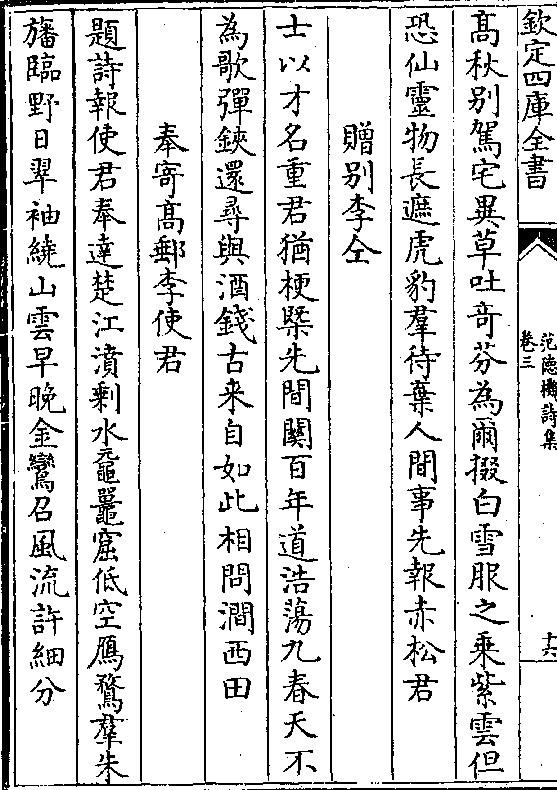 欽定四庫全書
范德機詩集
卷三
十六
髙秋别駕宅異草吐奇芬為爾掇白雪服之乗紫雲但
恐仙靈物長遮虎豹羣待棄人間事先報赤松君
贈别李仝
士以才名重君猶梗槩先間關百年道浩蕩九春天不
為歌彈鋏還尋與酒錢古来自如此相問澗西田
奉寄髙郵李使君
題詩報使君奉達楚江濆剩水黿鼉窟低空鴈鶩羣朱
旛臨野日翠袖繞山雲早晚金鸞召風流許細分